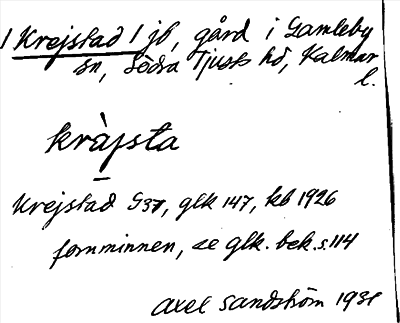 1 Krejstad 1 jb, gård i Gamleby
sn, Södra Tjusts hd, Kalmar
l.
kràjsta
Krejstad G37, glk 147, kb 1926
fornminnen, se glk. bek. s. 114
Axel Sandström 1931